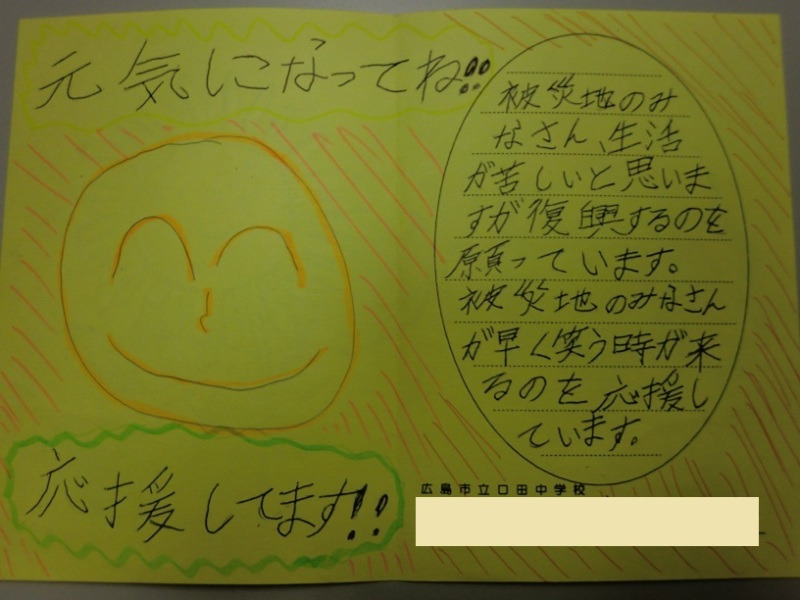 元気になってね!!
応援してます!!
被災地のみ
なさん、生活
が苦しいと思いま
すが復興するのを
願っています。
被災地のみなさん
が早く笑う時が来
るのを応援し
ています。
広島市立口田中学校